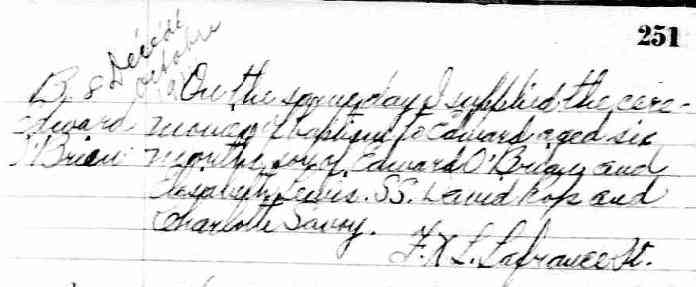 251
Décédé
octobre
B. 8 On the same day I supplied the cere-
Edward monies of baptism to Edward aged six
O'Brien months son of Edward O'Brien and
Elizabeth Lewis. SS. David Ross and
Charlotte Savoy.
F. X. L. Lafrance Pt.